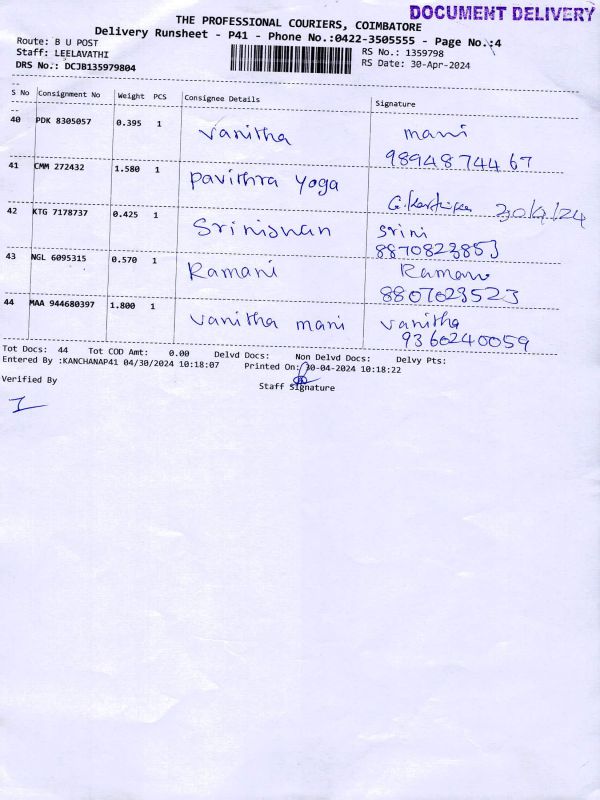 DOCUMENT DELIVERY
THE PROFESSIONAL COURIERS, COIMBATORE
Delivery Runsheet - P41 - Phone No.:0422-3505555 - Page No.:4
Route: B U POST
RS No.: 1359798
Staff: LEELAVATHI
RS Date: 30-Apr-2024
DRS No.: DCJB135979804
S No Consignment No Weight PCS Consignee Details Signature
40 PDK 8305057 0.395 1 Vanitha mani
9894874467
41 CMM 272432 1.580 1 Pavithra Yoga
G. 30/4/24
42 KTG 7178737 0.425 1 Srinishan Srini
8870823853
43 NGL 6095315 0.570 1 Ramani Ramani
8807023523
44 MAA 944680397 1.800 1 Vanitha mani Vanitha
9360240059
Tot Docs: 44 Tot COD Amt: 0.00 Delvd Docs: Non Delvd Docs: Delvy Pts:
Entered By :KANCHANAP41 04/30/2024 10:18:07 Printed On: 30-04-2024 10:18:22
Verified By
Staff Signature